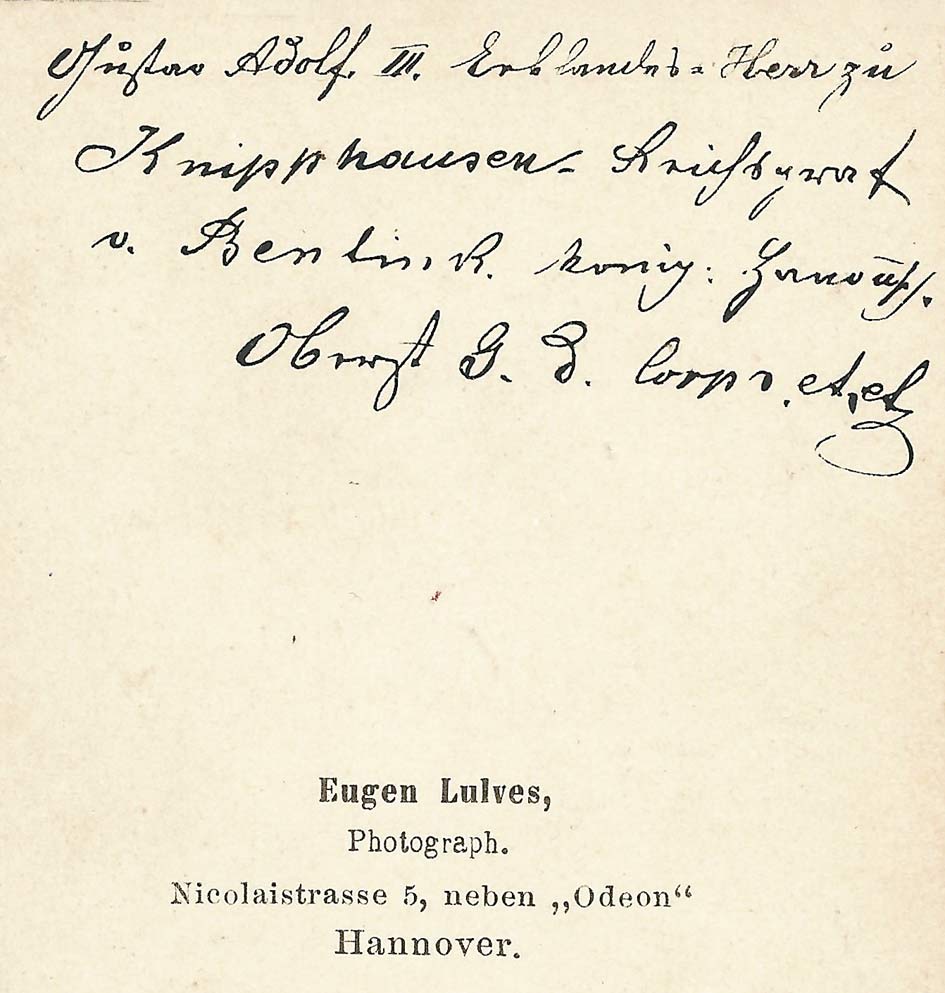 Gustav Adolf. III. Erblandes-Herr zu
Knipphausen- Reichsgraf
v. Bentinck. König: Hanov.
Oberst G. D. Corps. et, etz
Eugen Lulves,
Photograph.
Nicolaistrasse 5, neben „Odeon“
Hannover.